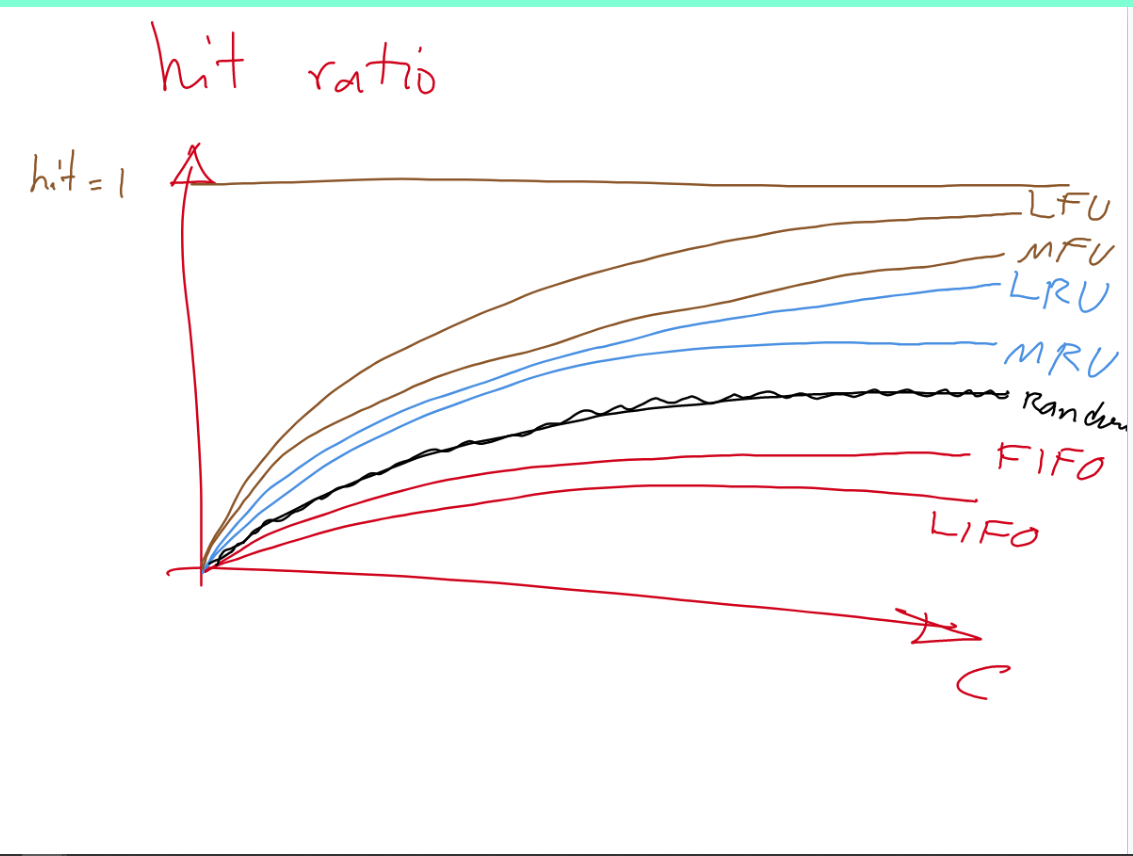 hit ratio
hit = 1
LFU
MFU
LRU
MRU
FIFO
LIFO
C